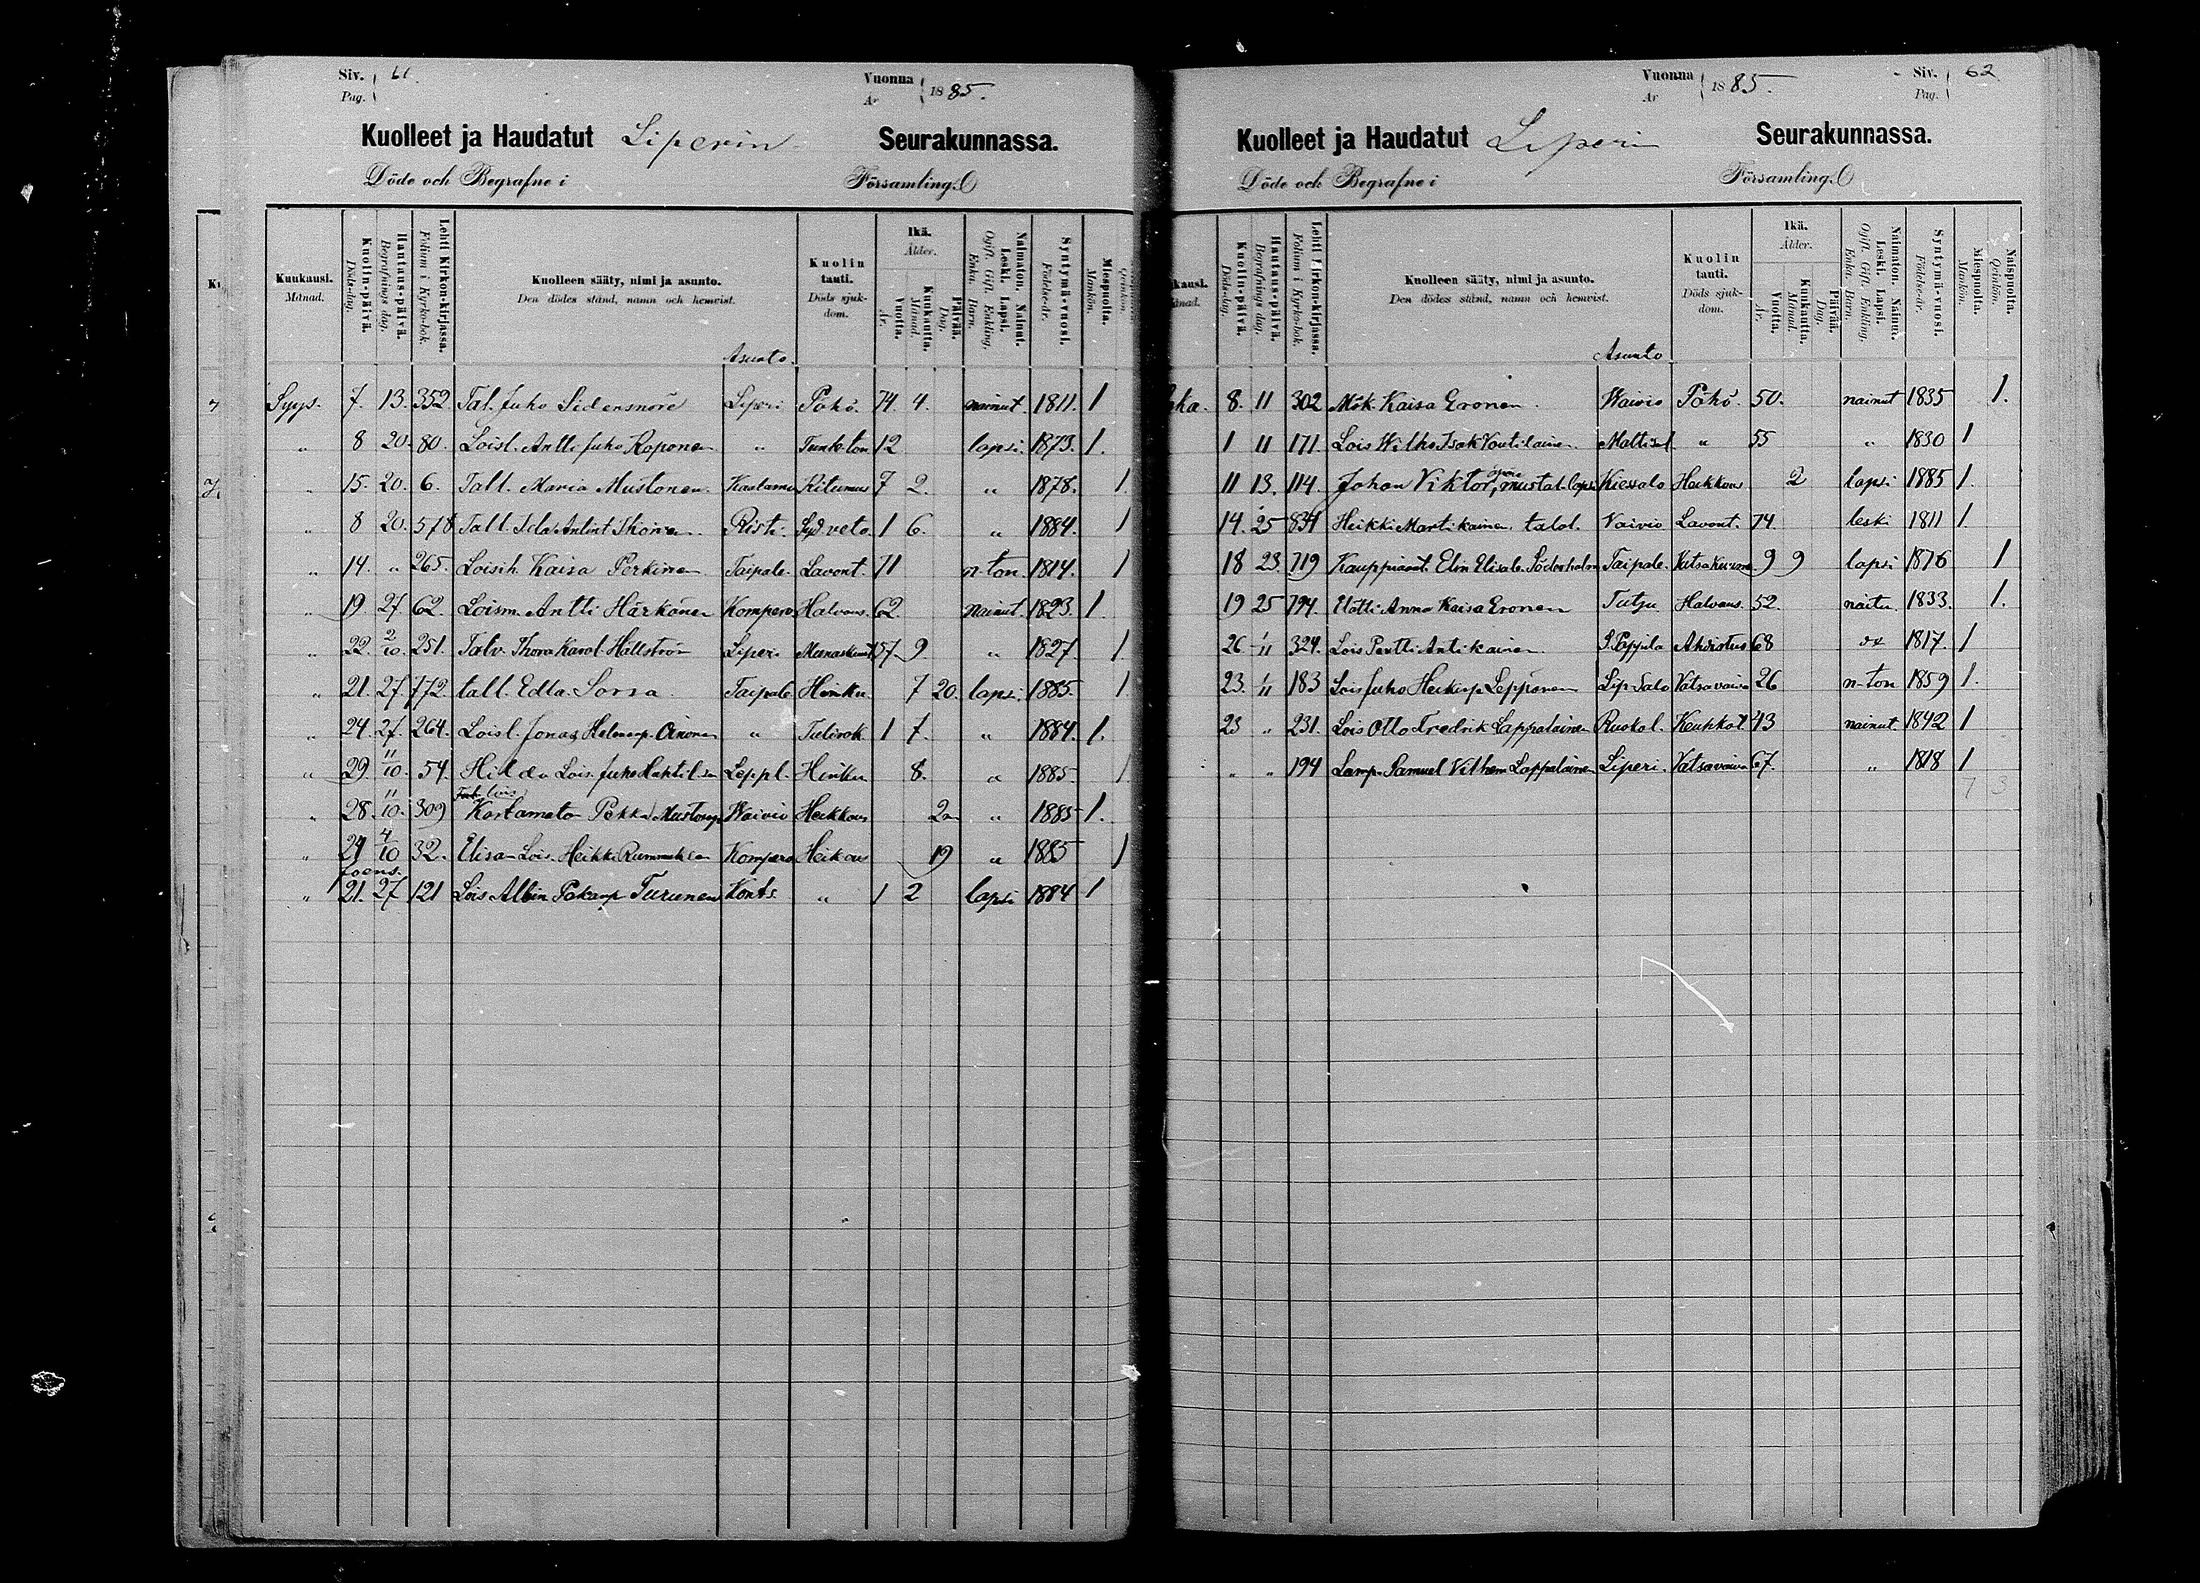 Siv. Pag. 61.
Vuonna År 1885.
Kuolleet ja Haudatut Liperin Seurakunnassa.
Döde och Begrafne i Församling.
Kuukausi. Månad. Kuolin-päivä. Döds-dag. Hautaus-päivä. Begrafnings dag. Lehti Kirkon-kirjassa. Folium i Kyrko-bok. Kuolleen sääty, nimi ja asunto. Den dödes stånd, namn och hemvist. Asunto. Kuolin tauti. Döds sjuk-dom. Ikä. Ålder. Vuotta. År. Kuukautta. Månad. Päivää. Dag. Naimaton. Nainut. Leski. Lapsi. Ogift. Gift. Enkling. Enka. Barn. Syntymä-vuosi. Födelse-år. Miespuolta. Mankön.
Syys. 7. 13. 352. Tal. Juho Sidensnöre Liperi Pöhö. 74. 4. nainut 1811. 1
" 8 20. 80. Loisl. Antti Juho Roponen " 12 lapsi. 1873. 1.
" 15. 20. 6. Tall. Maria Mustonen. Kaatamo Kitumus 7 2. " 1878. 1.
" 8 20. 578 Tall. Ida Ikonen Risti. 1 6. " 1884. 1
" 14. " 265. Loisih. Kaisa Perkinen Taipale. Lavant. 71 n-ton 1814. 1
" 19 27 62. Loism. Antti Härkönen Kompero Halvaus. 62. nainut. 1823. 1.
" 22. 2/10. 251. Talv. Thora Karol. Hällström Liperi 57 9. " 1827 1.
" 21. 27. 772. tall. Edla Sorsa Taipale Hinku 7 20. lapsi. 1885. 1
" 24. 27. 264. Loisl. Jonas Oinonen " Tulirok. 1 7. " 1884. 1.
" 29. 11/10. 54. Hilda Lois. Juho Leppl. Hinku 8. " 1885 1
" 28. 11/10. 309 lois Pekka Waivio Heikkous " 1885 1.
" 29 4/10 32. Elisa Lois. Heikki Kompero Heikous 19 " 1885 1
" 21. 27 121 Lois Albin Turunen Konts. " 1 2 lapsi 1884 1
Vuonna År 1885.
Siv. Pag. 62
Kuolleet ja Haudatut Liperi Seurakunnassa.
Döde och Begrafne i Församling.
Kuolin-päivä. Döds-dag. Hautaus-päivä. Begrafnings dag. Lehti Kirkon-kirjassa. Folium i Kyrko-bok. Kuolleen sääty, nimi ja asunto. Den dödes stånd, namn och hemvist. Asunto Kuolin tauti. Döds sjuk-dom. Ikä. Ålder. Vuotta. År. Kuukautta. Månad. Päivää. Dag. Naimaton. Nainut. Leski. Lapsi. Ogift. Gift. Enkling. Enka. Barn. Syntymä-vuosi. Födelse-år. Miespuolta. Mankön. Naispuolta. Qvinkön.
8. 11 302 Mök. Kaisa Eronen. Waivio Pöhö. 50. nainut 1835 1.
1 11 171. Lois Wilho Isak Voutilainen " 55 " 1830 1
11 13. 114. Johan Viktor, mustal. lapsi Kiessalo Heikkous 2 lapsi 1885 1.
14. 25 834 Heikki Martikainen, talol. Vaivio Lavant. 74. leski 1811 1.
18 23. 719 Elin Elisab. Söderholm Taipale. 9 9 lapsi 1876 1
19 25 794. Anna Kaisa Eronen Tutju Halvaus. 52. 1833. 1.
26 1/11 324. Lois Pertti Antikainen Ahdistus 68 1817. 1
23. 1/11 183 Lois Juho Heikinp Leppänen Lip Salo Vatsavaiva 26 n-ton 1859 1.
23 " 231. Lois Otto Fredrik Lappalainen Ruokol. Keuhkot. 43 nainut. 1842 1
" " 194 Lamp. Samuel Vilhem Lappalainen Liperi. Vatsavaiva 67. " 1818 1
7 3